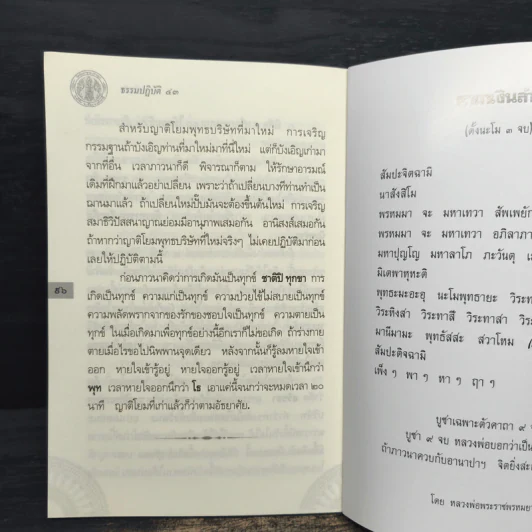 ธรรมปฏิบัติ ๔๓
สำหรับญาติโยมพุทธบริษัทที่มาใหม่ การเจริญ
กรรมฐานถ้าบังเอิญท่านที่มาใหม่มาที่นี่ใหม่ แต่ก็บังเอิญเก่ามา
จากที่อื่น เวลาภาวนาก็ดี พิจารณาก็ตาม ให้รักษาอารมณ์
เดิมที่ฝึกมาแล้วอย่าเปลี่ยน เพราะว่าถ้าเปลี่ยนบางทีท่านทำเป็น
ฌานมาแล้ว ถ้าเปลี่ยนใหม่ปั๊บมันจะต้องขึ้นต้นใหม่ การเจริญ
สมาธิวิปัสสนาญาณย่อมมีอานุภาพเสมอกัน อานิสงส์เสมอกัน
ถ้าหากว่าญาติโยมพุทธบริษัทที่ใหม่จริงๆ ไม่เคยปฏิบัติมาก่อน
เลยให้ปฏิบัติตามนี้
ก่อนภาวนาคิดว่าการเกิดมันเป็นทุกข์ ชาติปิ ทุกขา การ
เกิดเป็นทุกข์ ความแก่เป็นทุกข์ ความป่วยไข้ไม่สบายเป็นทุกข์
ความพลัดพรากจากของรักของชอบใจเป็นทุกข์ ความตายเป็น
ทุกข์ ในเมื่อเกิดมาเพื่อทุกข์อย่างนี้อีกเราก็ไม่ขอเกิด ถ้าร่างกาย
ตายเมื่อไรขอไปนิพพานจุดเดียว หลังจากนั้นก็รู้ลมหายใจเข้า
ออก หายใจเข้ารู้อยู่ หายใจออกรู้อยู่ เวลาหายใจเข้านึกว่า
พุท เวลาหายใจออกนึกว่า โธ เอาแค่นี้จนกว่าจะหมดเวลา ๒๐
นาที ญาติโยมที่เก่าแล้วก็ว่าตามอัธยาศัย.
๕๖
(ตั้งนะโม ๓ จบ)
สัมปะจิตฉามิ
นาสังสิโม
พรหมมา จะ มหาเทวา สัพเพยัก
พรหมมา จะ มหาเทวา อภิลาภา
มหาปุญโญ มหาลาโภ ภะวันตุ เ
มิเตพาหุหะติ
พุทธะมะอะอุ นะโมพุทธายะ วิระท
วิระหิงสา วิระทาสี วิระทาสา วิระ
มานีมามะ พุทธัสสะ สวาโหม
สัมปะติจฉามิ
เพ็งๆ พาๆ หาๆ ฤาๆ
บูชาเฉพาะตัวคาถา ๙ จ
บูชา ๙ จบ หลวงพ่อบอกว่าเป็น
ถ้าภาวนาควบกับอานาปาฯ จิตยิ่งสะ
โดย หลวงพ่อพระราชพรหมยา